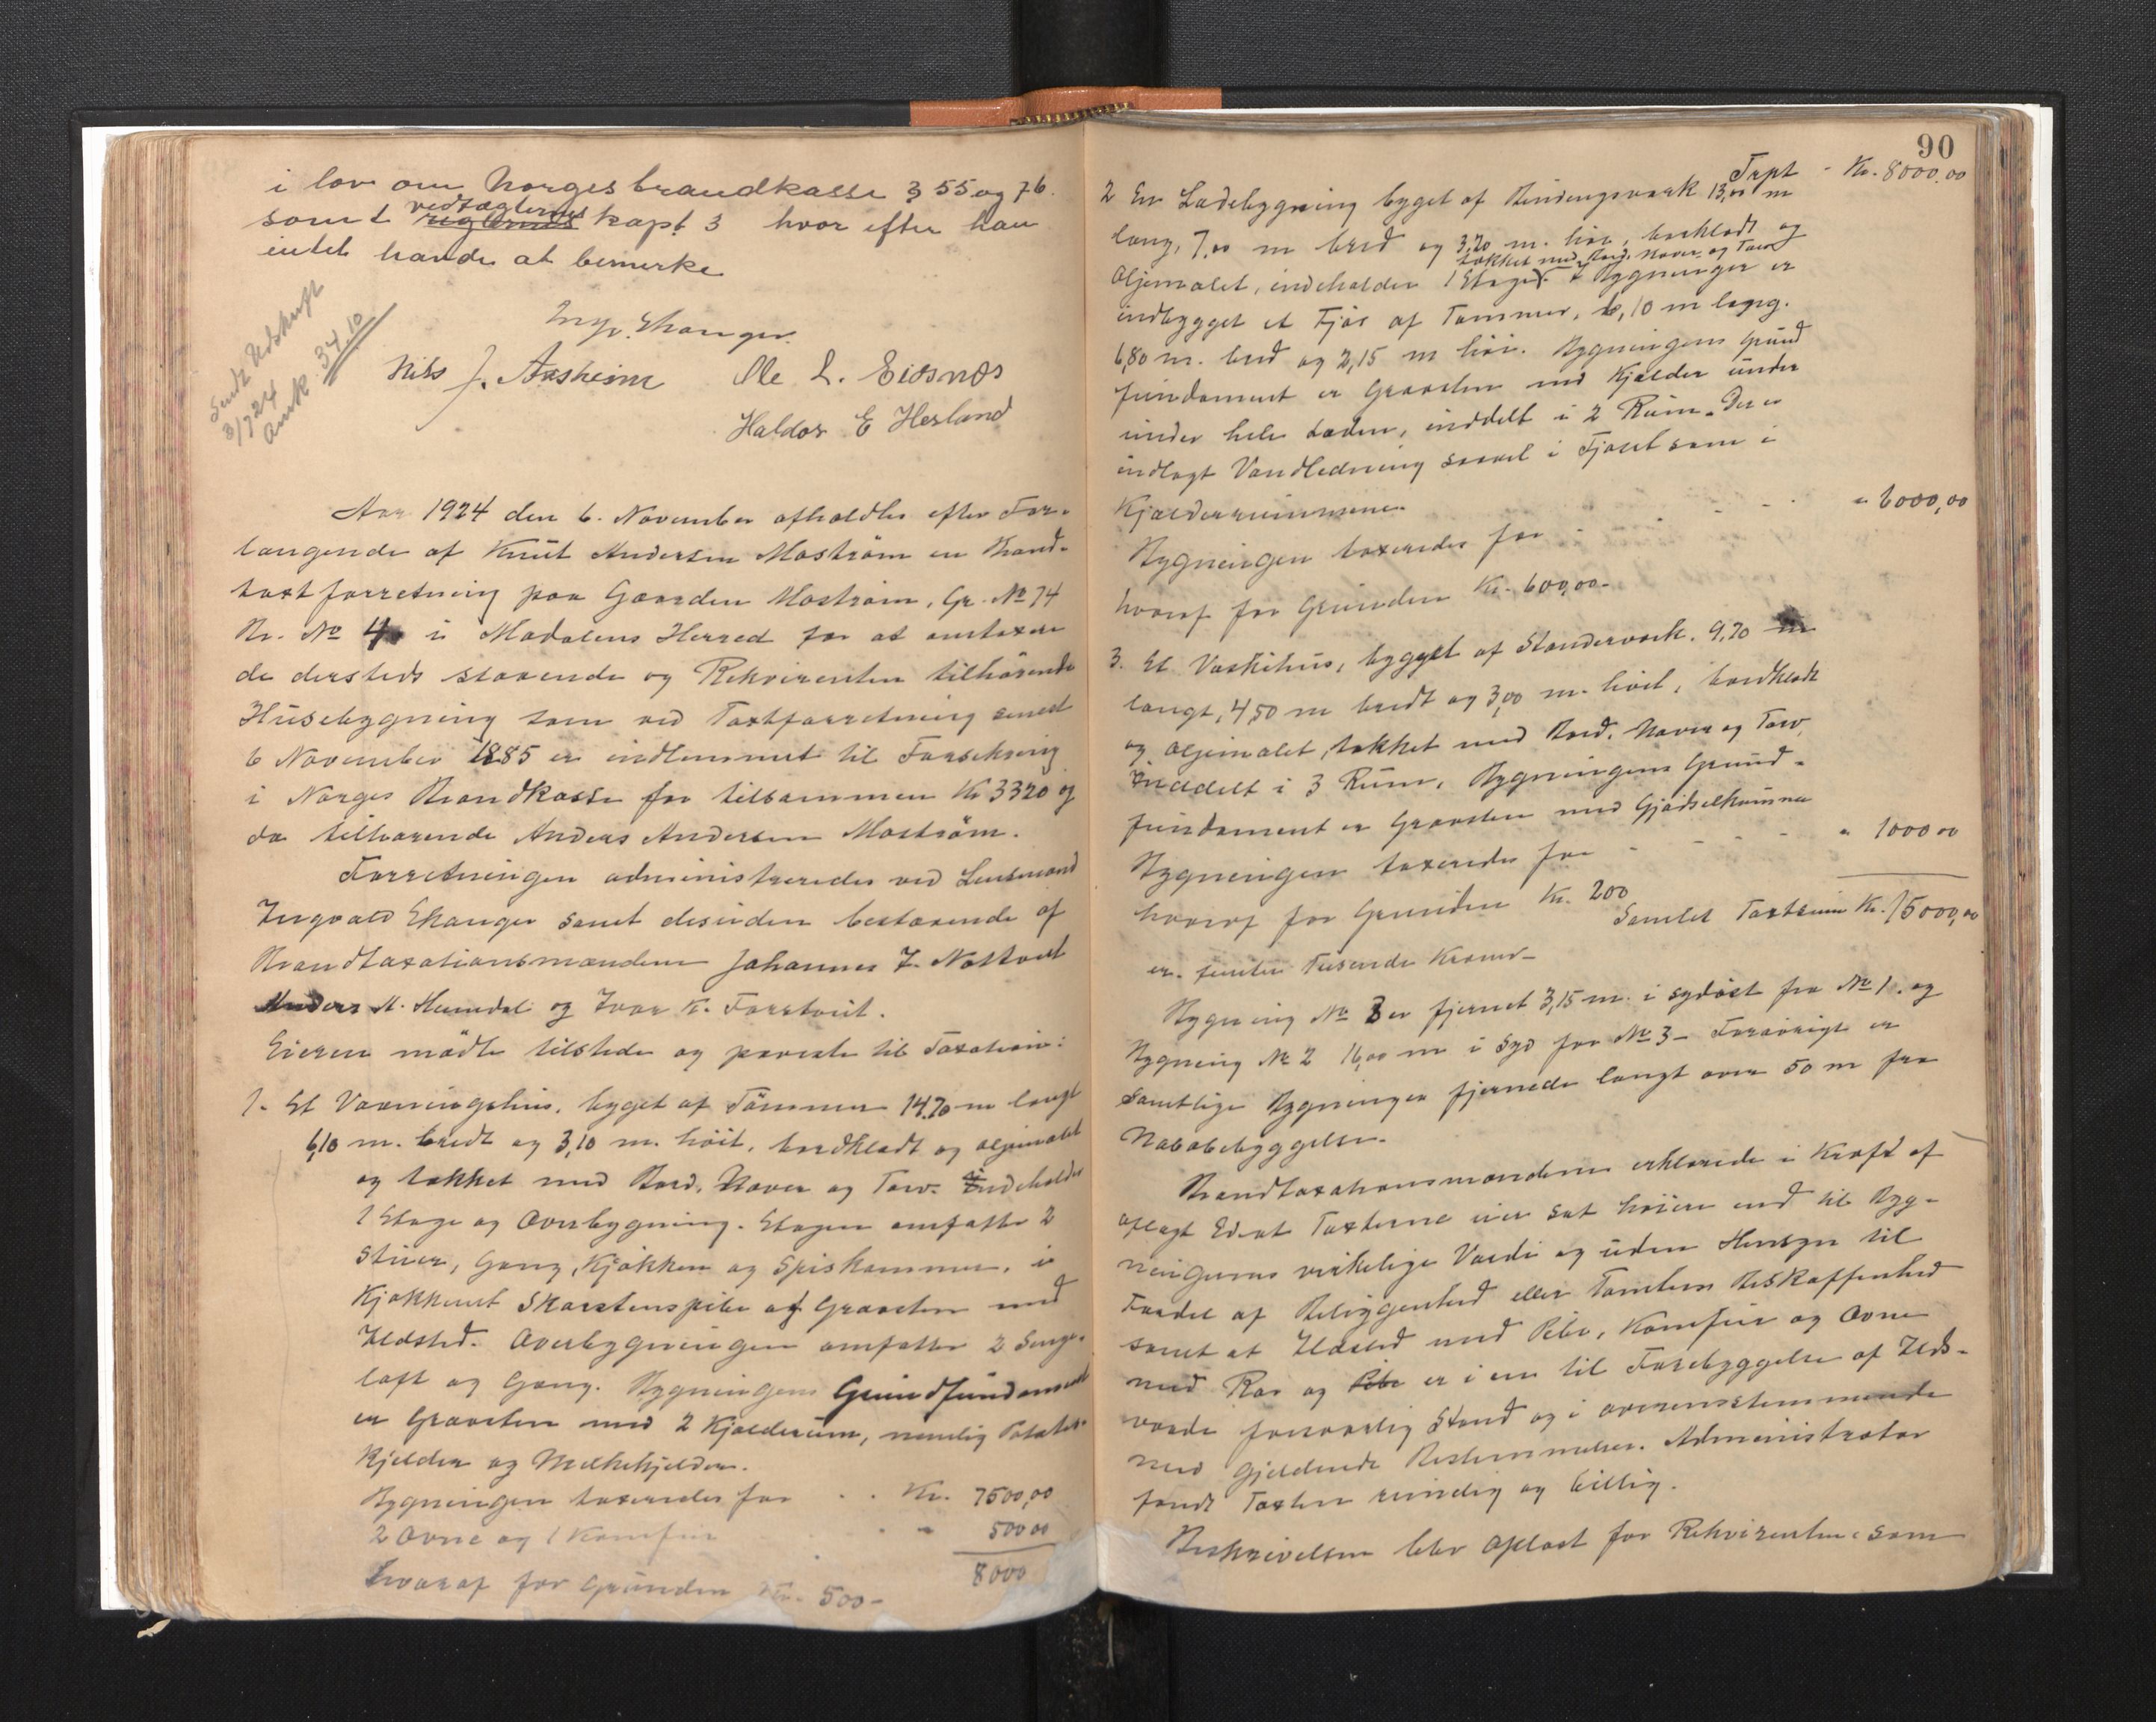 i lov om Norges brandkasse § 55 og 76.
samt vedtægternes reglernes kapt 3 hvor efter han
intet havde at bemerke
Ingv. Ekanger.
Nils J. Aasheim Ole L. Eidsnes
Haldor E Herland
Sendt Udskrift
3/1 24
Ank. 34,10
Aar 1924 den 6. November afholdtes efter For-
langende af Knut Andersen Mostrøm en Brand-
taxtforretning paa Gaarden Mostrøm, Gr. No 74
Br. No 4 i Modalens Herred for at omtaxere
de dersteds staaende og Rekvirenten tilhørende
Husebygning som ved Taxtforretning
6 November 1885 er indlemmet til Forsikring
i Norges Brandkasse for tilsammen Kr 3320 og
da tilhørende Anders Andersen Mostrøm.
Forretningen administreredes ved Lensmand
Ingvald Ekanger samt desuden bestaaende af
Brandtaxationsmændene Johannes J.
Anders M. Hummdal og Ivar K. Farstveit.
Eieren mødte tilstede og paaviste til Taxation:
1. Et Vaaningshus, bygget af Tømmer 14,70 m langt
6,10 m. bredt og 3,10 m. høit, bordklædt og oljemalet
og tækket med Bord, Næver og Torv. Indeholder
1 Etage og Overbygning. Etagen omfatter 2
Stuer, Gang, Kjøkken og Spiskammer, i
Kjøkkenet Skorstenspibe af Graasten med
Ildsted. Overbygningen omfatter 2 Senge-
loft og Gang. Bygningens Grundfundament
er Graasten med 2 Kjælderum, nemlig Potetes-
kjelder og Melkekjelder.
Bygningen taxeredes for . . Kr. 7500,00
2 Ovne og 1 Komfur . " 500 00
8000
hvoraf for Grunden Kr. 500-
90
Trpt - Kr. 8000,00
2 En Ladebygning bygget af Bindingsværk 13,00 m
lang, 7,00 m bred og 3,20 m. høi, bordklædt og
tækket med Bord, Næver og Torv
Oljemalet, indeholder 1 Etage. I Bygningen er
indbygget et Fjøs af Tømmer, 6,10 m lang.
6,80 m. bred og 2,15 m høi. Bygningens Grund
fundament er Graasten med Kjælder under
under hele Laden, inddelt i 2 Rum. Der er
indlagt Vandledning saavel i Fjøset som i
Kjælderrummene.
Bygningen taxeredes for - - - - " 6000,00
hvoraf for Grunden Kr. 600,00-
3. Et Vaskehus, bygget af Standerværk. 9,20 m
langt, 4,50 m bredt og 3,00 m. høit, bordklædt
og oljemalet, tækket med Bord, Næver og Torv,
Inddelt i 3 Rum, Bygningens Grund-
fundament er Graasten med Gjødselkummer
Bygningen taxeredes for - - - - " 1000 00
hvoraf for Grunden Kr. 200
Samlet Taxtsum Kr. 15000,00
er femten Tusende Kroner-
Bygning No 3 er fjernet 3,15 m. i sydøst fra No 1. og
Bygning No 2 16,00 m i Syd for No 3- Forøvrigt er
samtlige Bygninger fjernede langt over 50 m fra
Nabobebyggelse.
Brandtaxationsmændene erklærede i Kraft af
aflagt Ed at Taxterne ei er sat høiere end til Byg-
ningernes virkelige Værdi og uden Hensyn til
Fordel af Beliggenhed eller Tomtens Beskaffenhed
samt at Ildsted med Pibe, Komfur og Ovne
med Rør og Pibe er i en til Forebyggelse af Ilds-
vaade forsvarlig Stand og i overensstemmende
med gjældende Bestemmelser. Administrator
fandt Taxten rimelig og billig.
Beskrivelsen blev oplæst for Rekvirenten som